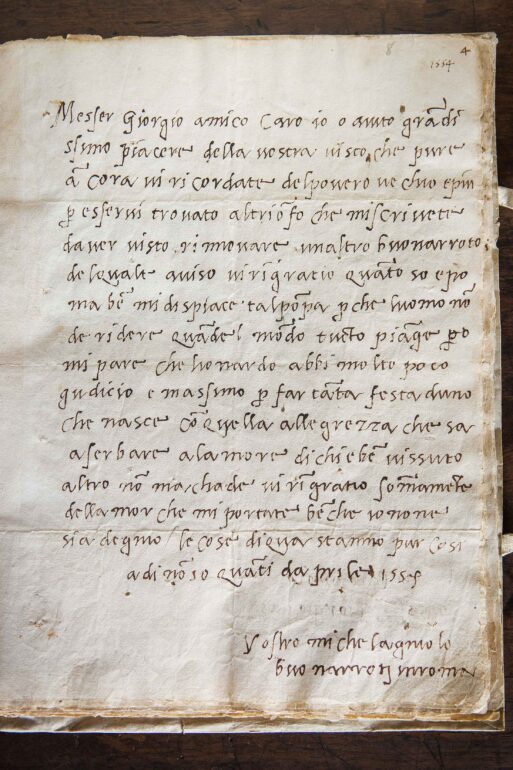 8 4
1554
Messer Giorgio amico caro io o auto grādi
ssimo piacere della vostra visto che pure
ā cora vi ricordate del povero vechio e piu
p esservi trovato al triōfo che mi scrivete
d aver visto rinnovare un altro buonarroto
del quale aviso vi rīgratio quāto so e po
ma bē mi dispiace tal pōpa p che l uomo nō
de ridere quāde l mōdo tucto piāge po
mi pare che lionardo abbi molto poco
gudicio e massimo p far tāta festa d uno
che nasce cō quella allegrezza che s a
a serbare a la morte di chi è bē vissuto
altro nō m achade vi rīgratio somāmēte
dell amor che mi portate bē che io no ne
sia degnio le cose di qua stanno pur cosi
a di nō so quāti d aprile 155
Vostro michelagniolo
buonarroti in roma